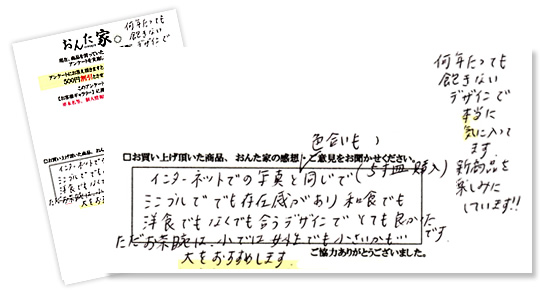 おんた家。
何年たっても
飽きない
デザインで
アンケートにお答え頂きますと
500円割引
□お買い上げ頂いた商品、お
インターネットでの
シンプルで でも存
洋食でもなんでも合
ただお茶碗は、小では
大をおすす
色合いも、
□お買い上げ頂いた商品、おんた家の感想・ご意見をお聞かせください。
インターネットでの写真と同じで(5寸皿 購入)
シンプルで でも存在感があり 和食でも
洋食でもなんでも合うデザインで とても良かったです。
ただお茶碗は、小では女性でも小さいかも…
大をおすすめします。
ご協力ありがとうございました。
何年たっても
飽きない
デザインで
本当に
気に入って
ます。
新商品を
楽しみに
しています!!